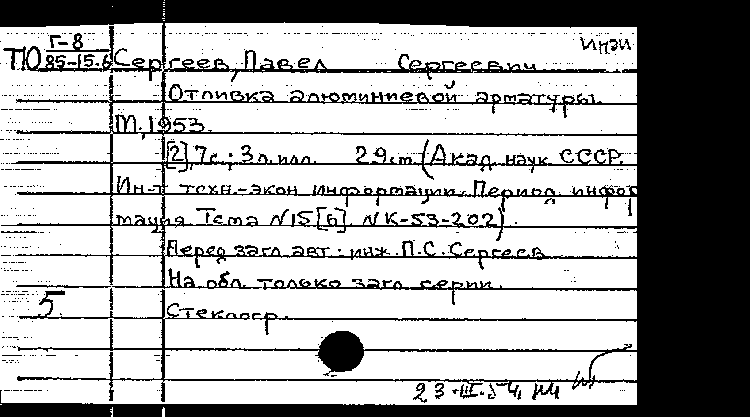 ИТЭИ
ПО Г-8
85-15.6 Сергеев, Павел Сергеевич
Отливка алюминиевой арматуры.
М, 1953.
[2], 7с.; 3 л. илл. 29 см (Акад. наук СССР.
Ин-т техн.-экон информации. Период. инфор
мация Тема N15[6] NК-53-202).
Перед загл. авт.: инж. П.С. Сергеев
На обл. только загл. серии.
5. Стеклогр.
23.III.54